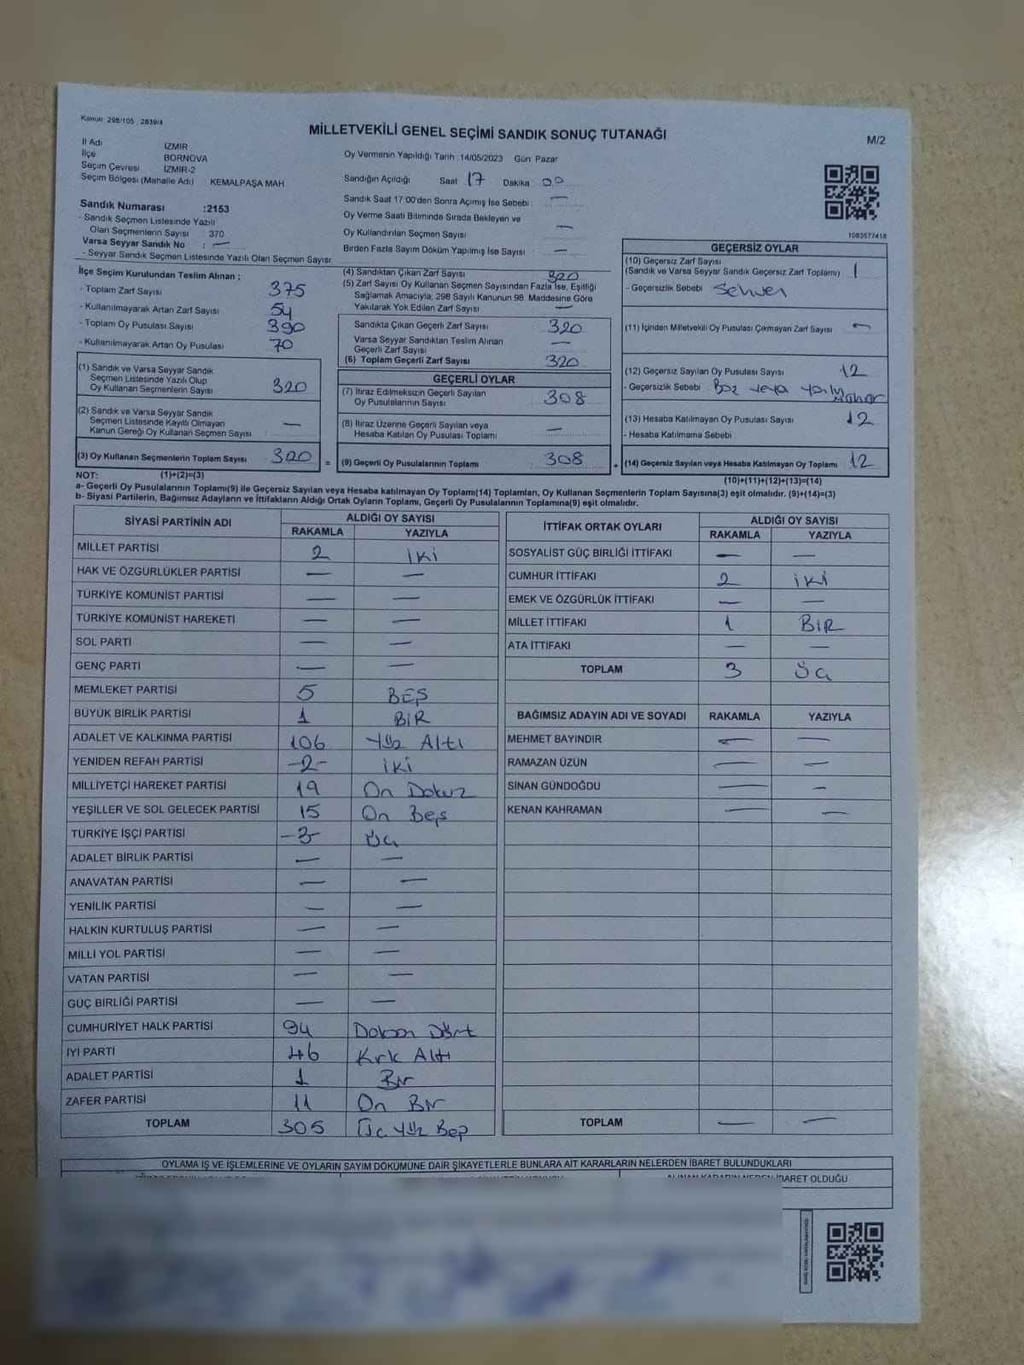 Kanun: 298/105 , 2839/4
MİLLETVEKİLİ GENEL SEÇİMİ SANDIK SONUÇ TUTANAĞI
M/2
İl Adı İZMİR
İlçe BORNOVA
Seçim Çevresi İZMİR-2
Seçim Bölgesi (Mahalle Adı) KEMALPAŞA MAH
Oy Vermenin Yapıldığı Tarih :14/05/2023 Gün Pazar
Sandığın Açıldığı Saat 17 Dakika 00
Sandık Saat 17:00'den Sonra Açımış İse Sebebi : —
Oy Verme Saati Bitiminde Sırada Bekleyen ve
Oy Kullandırılan Seçmen Sayısı —
Birden Fazla Sayım Döküm Yapılmış İse Sayısı —
1083577418
Sandık Numarası :2153
- Sandık Seçmen Listesinde Yazılı
Olan Seçmenlerin Sayısı 370
Varsa Seyyar Sandık No : —
- Seyyar Sandık Seçmen Listesinde Yazılı Olan Seçmen Sayısı
İlçe Seçim Kurulundan Teslim Alınan ;
- Toplam Zarf Sayısı 375
- Kullanılmayarak Artan Zarf Sayısı 54
- Toplam Oy Pusulası Sayısı 390
- Kullanılmayarak Artan Oy Pusulası 70
(1) Sandık ve Varsa Seyyar Sandık
Seçmen Listesinde Yazılı Olup
Oy Kullanan Seçmenlerin Sayısı 320
(2) Sandık ve Varsa Seyyar Sandık
Seçmen Listesinde Kayıtlı Olmayan
Kanun Gereği Oy Kullanan Seçmen Sayısı —
(3) Oy Kullanan Seçmenlerin Toplam Sayısı 320 =
(4) Sandıktan Çıkan Zarf Sayısı 320
(5) Zarf Sayısı Oy Kullanan Seçmen Sayısından Fazla İse, Eşitliği
Sağlamak Amacıyla, 298 Sayılı Kanunun 98. Maddesine Göre
Yakılarak Yok Edilen Zarf Sayısı —
Sandıkta Çıkan Geçerli Zarf Sayısı 320
Varsa Seyyar Sandıktan Teslim Alınan
Geçerli Zarf Sayısı —
(6) Toplam Geçerli Zarf Sayısı 320
GEÇERLİ OYLAR
(7) İtiraz Edilmeksizin Geçerli Sayılan
Oy Pusulalarının Sayısı 308
(8) İtiraz Üzerine Geçerli Sayılan veya
Hesaba Katılan Oy Pusulası Toplamı —
(9) Geçerli Oy Pusulalarının Toplamı 308 +
GEÇERSİZ OYLAR
(10) Geçersiz Zarf Sayısı
(Sandık ve Varsa Seyyar Sandık Geçersiz Zarf Toplamı) 1
- Geçersizlik Sebebi Sehven
(11) İçinden Milletvekili Oy Pusulası Çıkmayan Zarf Sayısı —
(12) Geçersiz Sayılan Oy Pusulası Sayısı 12
- Geçersizlik Sebebi Boz veya
(13) Hesaba Katılmayan Oy Pusulası Sayısı 12
- Hesaba Katılmama Sebebi
(14) Geçersiz Sayılan veya Hesaba Katılmayan Oy Toplamı 12
NOT: (1)+(2)=(3)
(10)+(11)+(12)+(13)=(14)
a- Geçerli Oy Pusulalarının Toplamı(9) ile Geçersiz Sayılan veya Hesaba katılmayan Oy Toplamı(14) Toplamları, Oy Kullanan Seçmenlerin Toplam Sayısına(3) eşit olmalıdır. (9)+(14)=(3)
b- Siyasi Partilerin, Bağımsız Adayların ve İttifakların Aldığı Ortak Oyların Toplamı, Geçerli Oy Pusulalarının Toplamına(9) eşit olmalıdır.
SİYASİ PARTİNİN ADI ALDIĞI OY SAYISI
RAKAMLA YAZIYLA
MİLLET PARTİSİ 2 İKİ
HAK VE ÖZGÜRLÜKLER PARTİSİ — —
TÜRKİYE KOMÜNİST PARTİSİ — —
TÜRKİYE KOMÜNİST HAREKETİ — —
SOL PARTİ — —
GENÇ PARTİ — —
MEMLEKET PARTİSİ 5 BEŞ
BÜYÜK BİRLİK PARTİSİ 1 BİR
ADALET VE KALKINMA PARTİSİ 106 Yüz Altı
YENİDEN REFAH PARTİSİ -2- İKİ
MİLLİYETÇİ HAREKET PARTİSİ 19 On Dokuz
YEŞİLLER VE SOL GELECEK PARTİSİ 15 On Beş
TÜRKİYE İŞÇİ PARTİSİ -3- Üç
ADALET BİRLİK PARTİSİ — —
ANAVATAN PARTİSİ — —
YENİLİK PARTİSİ — —
HALKIN KURTULUŞ PARTİSİ — —
MİLLİ YOL PARTİSİ — —
VATAN PARTİSİ — —
GÜÇ BİRLİĞİ PARTİSİ — —
CUMHURİYET HALK PARTİSİ 94 Doksan Dört
İYİ PARTİ 46 Kırk Altı
ADALET PARTİSİ 1 Bir
ZAFER PARTİSİ 11 On Bir
TOPLAM 305 Üç Yüz Beş
İTTİFAK ORTAK OYLARI ALDIĞI OY SAYISI
RAKAMLA YAZIYLA
SOSYALİST GÜÇ BİRLİĞİ İTTİFAKI — —
CUMHUR İTTİFAKI 2 İKİ
EMEK VE ÖZGÜRLÜK İTTİFAKI — —
MİLLET İTTİFAKI 1 BİR
ATA İTTİFAKI — —
TOPLAM 3 Üç
BAĞIMSIZ ADAYIN ADI VE SOYADI RAKAMLA YAZIYLA
MEHMET BAYINDIR — —
RAMAZAN ÜZÜN — —
SİNAN GÜNDOĞDU — —
KENAN KAHRAMAN — —
TOPLAM — —
OYLAMA İŞ VE İŞLEMLERİNE VE OYLARIN SAYIM DÖKÜMÜNE DAİR ŞİKAYETLERLE BUNLARA AİT KARARLARIN NELERDEN İBARET BULUNDUKLARI
ALINAN KARARIN NEDEN İBARET OLDUĞU